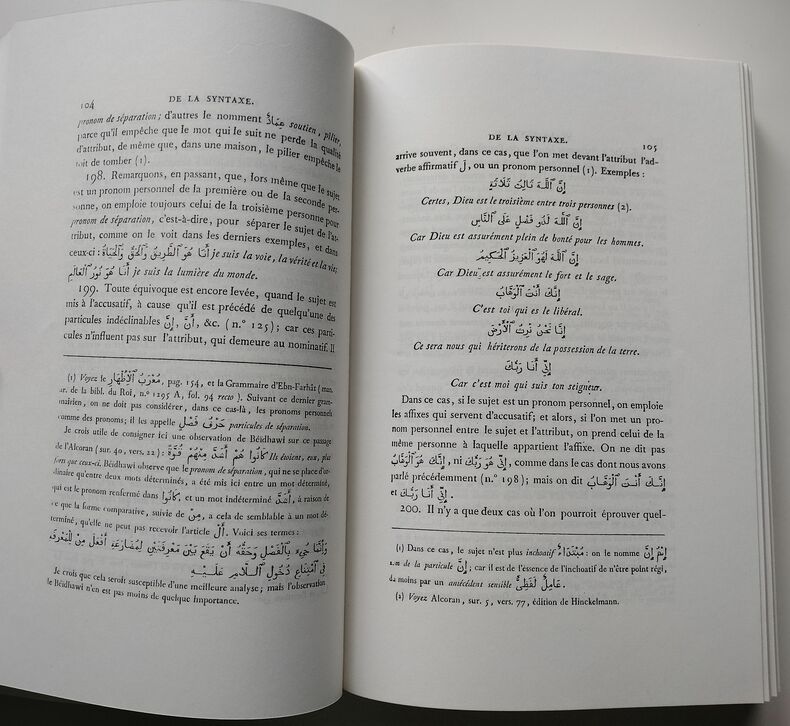 104
DE LA SYNTAXE.
pronom de séparation; d'autres le nomment عِمَادٌ soutien, pilier,
parce qu'il empêche que le mot qui le suit ne perde la qualité
d'attribut, de même que, dans une maison, le pilier empêche le
toit de tomber (1).
198. Remarquons, en passant, que, lors même que le sujet
est un pronom personnel de la première ou de la seconde per-
sonne, on emploie toujours celui de la troisième personne pour
pronom de séparation, c'est-à-dire, pour séparer le sujet de l'at-
tribut, comme on le voit dans les derniers exemples, et dans
ceux-ci: أَنَا هُوَ ٱلطَّرِيقُ وَٱلْحَقُّ وَٱلْحَيَاةُ je suis la voie, la vérité et la vie;
أَنَا هُوَ نُورُ ٱلْعَالَمِ je suis la lumière du monde.
199. Toute équivoque est encore levée, quand le sujet est
mis à l'accusatif, à cause qu'il est précédé de quelqu'une des
particules indéclinables إِنَّ, أَنَّ, &c. (n.° 125); car ces parti-
cules n'influent pas sur l'attribut, qui demeure au nominatif. Il
(1) Voyez le مُعْرِبُ ٱلْأَظْهَارِ, pag. 154, et la Grammaire d'Ebn-Farhât (man.
ar. de la bibl. du Roi, n.° 1295 A, fol. 94 recto). Suivant ce dernier gram-
mairien, on ne doit pas considérer, dans ce cas-là, les pronoms personnels
comme des pronoms; il les appelle حَرْفُ فَصْلٍ particules de séparation.
Je crois utile de consigner ici une observation de Béïdhawi sur ce passage
de l'Alcoran (sur. 40, vers. 22): كَانُوا هُمْ أَشَدَّ مِنْهُمْ قُوَّةً Ils étoient, eux, plus
forts que ceux-ci. Béïdhawi observe que le pronom de séparation, qui ne se place d'or-
dinaire qu'entre deux mots déterminés, a été mis ici entre un mot déterminé,
qui est le pronom renfermé dans كَانُوا, et un mot indéterminé أَشَدَّ, à raison de
ce que la forme comparative, suivie de مِنْ, a cela de semblable à un mot dé-
terminé, qu'elle ne peut pas recevoir l'article أَلْ. Voici ses termes:
وَإِنَّمَا جِيءَ بِٱلْفَصْلِ وَحَقُّهُ أَنْ يَقَعَ بَيْنَ مَعْرِفَتَيْنِ لِمُضَارَعَةِ أَفْعَلَ مِنْ لِلْمَعْرِفَةِ
فِي ٱمْتِنَاعِ دُخُولِ ٱللَّامِ عَلَيْهِ
Je crois que cela seroit susceptible d'une meilleure analyse; mais l'observation
de Béïdhawi n'en est pas moins de quelque importance.
DE LA SYNTAXE.
105
arrive souvent, dans ce cas, que l'on met devant l'attribut l'ad-
verbe affirmatif لَ, ou un pronom personnel (1). Exemples:
إِنَّ ٱللَّهَ ثَالِثُ ثَلَاثَةٍ
Certes, Dieu est le troisième entre trois personnes (2).
إِنَّ ٱللَّهَ لَذُو فَضْلٍ عَلَى ٱلنَّاسِ
Car Dieu est assurément plein de bonté pour les hommes.
إِنَّ ٱللَّهَ لَهُوَ ٱلْعَزِيزُ ٱلْحَكِيمُ
Car Dieu est assurément le fort et le sage.
إِنَّكَ أَنْتَ ٱلْوَهَّابُ
C'est toi qui es le libéral.
إِنَّا نَحْنُ نَرِثُ ٱلْأَرْضَ
Ce sera nous qui hériterons de la possession de la terre.
إِنِّي أَنَا رَبُّكَ
Car c'est moi qui suis ton seigneur.
Dans ce cas, si le sujet est un pronom personnel, on emploie
les affixes qui servent d'accusatif; et alors, si l'on met un pro-
nom personnel entre le sujet et l'attribut, on prend celui de la
même personne à laquelle appartient l'affixe. On ne dit pas
إِنَّكَ هُوَ ٱلْوَهَّابُ, ni إِنِّي هُوَ رَبُّكَ, comme dans le cas dont nous avons
parlé précédemment (n.° 198); mais on dit إِنَّكَ أَنْتَ ٱلْوَهَّابُ
et إِنِّي أَنَا رَبُّكَ.
200. Il n'y a que deux cas où l'on pourroit éprouver quel-
(1) Dans ce cas, le sujet n'est plus inchoatif مُبْتَدَاءٌ: on le nomme إِسْمُ إِنَّ
nom de la particule إِنَّ; car il est de l'essence de l'inchoatif de n'être point régi,
du moins par un antécédent sensible عَامِلٌ لَفْظِيٌّ.
(2) Voyez Alcoran, sur. 5, vers. 77, édition de Hinckelmann.